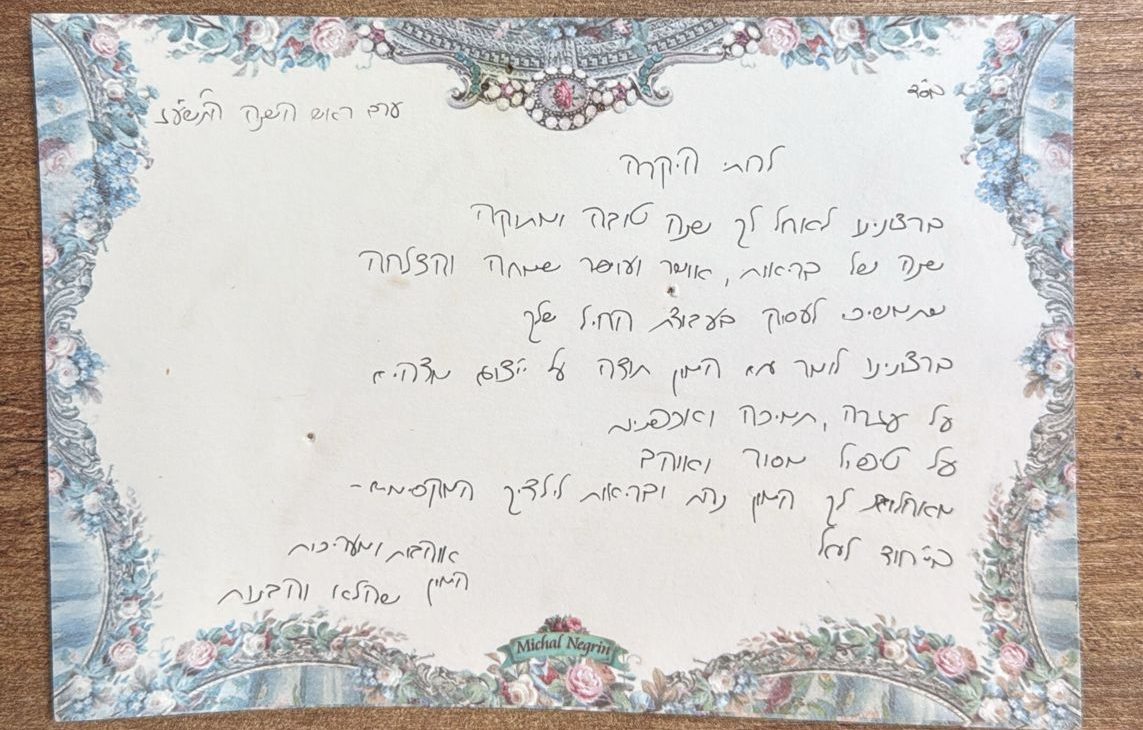 בס"ד
ערב ראש השנה התשע"ז
לרתי היקרה
ברצונינו לאחל לך שנה טובה ומתוקה
שנה של בריאות, אושר ועושר שמחה והצלחה
שתמשיכי לעסוק בעבודת החיל שלך
ברצונינו לומר המון תודה על
על עזרה, תמיכה ואכפתיות
על טיפול מסור ואוהב
מאחלות לך המון נחת ובריאות לילדיך המקסימים-
בייחוד לעגל
אוהבות ומעריכות
המון שהלא והבנות
Michal Negrin